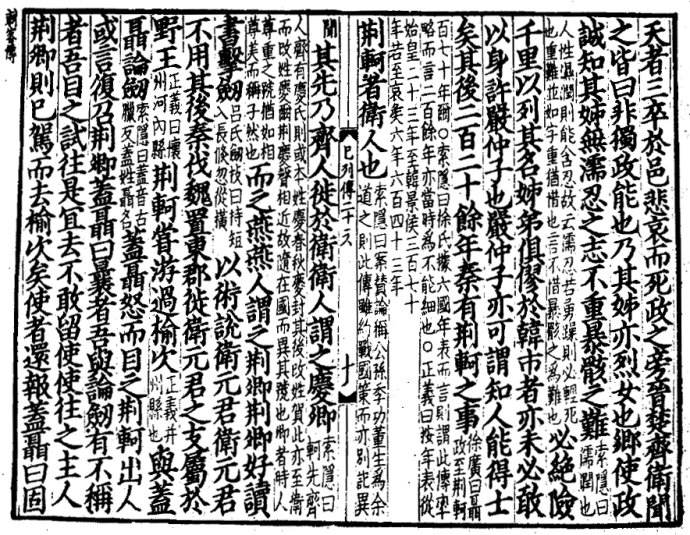 天者三卒於邑悲哀而死政之旁晉楚齊衛聞
之皆曰非獨政能也乃其姊亦烈女也鄉使政
誠知其姊無濡忍之志不重暴骸之難索隱曰濡潤也
人性濕潤則能含忍故云濡忍若勇躁則必輕死也重難並如字重猶惜也言不惜暴骸之爲難也必絕險
千里以列其名姊弟俱僇於韓市者亦未必敢
以身許嚴仲子也嚴仲子亦可謂知人能得士
矣其後二百二十餘年秦有荆軻之事徐廣曰聶政至荆軻
百七十年爾○索隱曰徐氏據六國年表而言則謂此傳率略而言二百餘年亦當時爲不能細也○正義曰按年表從
始皇二十三年至韓景侯三百七十年若至哀侯六年六百四十三年
荆軻者衛人也索隱曰案贊論稱公孫季功董生爲余道之則此傳雖約戰國策而亦別記異
列傳二十六 十
聞其先乃齊人徙於衛衛人謂之慶卿索隱曰軻先齊
人齊有慶氏則或本姓慶春秋慶封其後改姓賀此亦至衛而改姓慶爾荆慶聲相近故隨在國而異其號也卿者時人
尊重之號猶如相尊美而稱子然也而之燕燕人謂之荆卿荆卿好讀
書擊劒呂氏劒技曰持短入長倏忽從橫以術説衛元君衛元君
不用其後秦伐魏置東郡徙衛元君之支屬於
野王正義曰懷州河内縣荆軻甞游過榆次正義并州縣也與蓋
聶論劒索隱曰蓋音古臘反蓋姓聶名蓋聶怒而目之荆軻出人
或言復召荆卿蓋聶曰曩者吾與論劒有不稱
者吾目之試往是宜去不敢留使使往之主人
荆卿則巳駕而去榆次矣使者還報蓋聶曰固
刺客傳